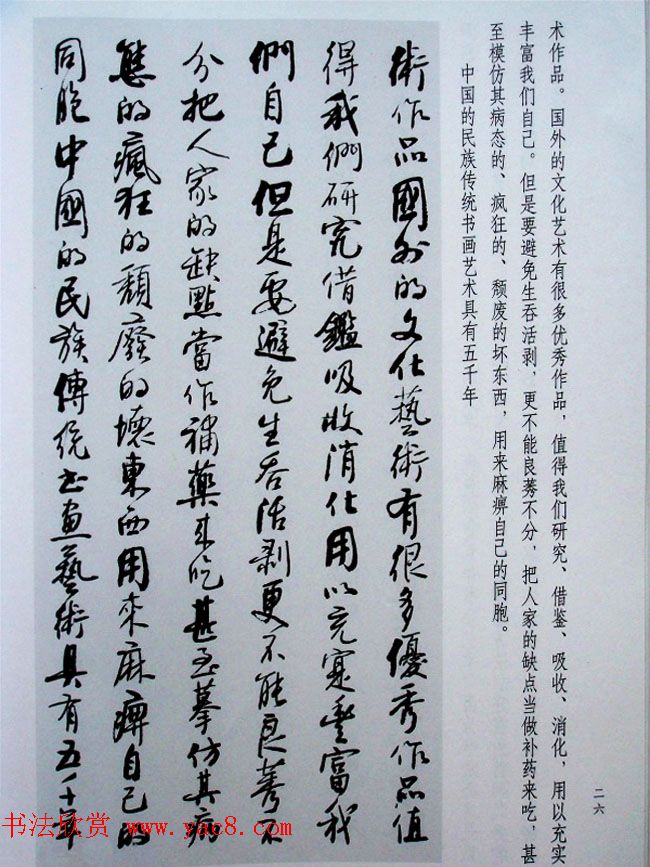 二六
术作品。国外的文化艺术有很多优秀作品，值得我们研究、借鉴、吸收、消化，用以充实
丰富我们自己。但是要避免生吞活剥，更不能良莠不分，把人家的缺点当做补药来吃，甚
至模仿其病态的、疯狂的、颓废的坏东西，用来麻痹自己的同胞。
中国的民族传统书画艺术具有五千年
術作品國外的文化藝術有很多優秀作品值
得我們研究借鑑吸收消化用以充寔豐富我
們自己但是要避免生吞活剥更不能良莠不
分把人家的缺點當作補藥来吃甚至摹仿其病
態的瘋狂的頽廢的壞東西用來麻痺自己的
同胞中國的民族傳統書畫藝術具有五千年
书法欣赏 www.yac8.com